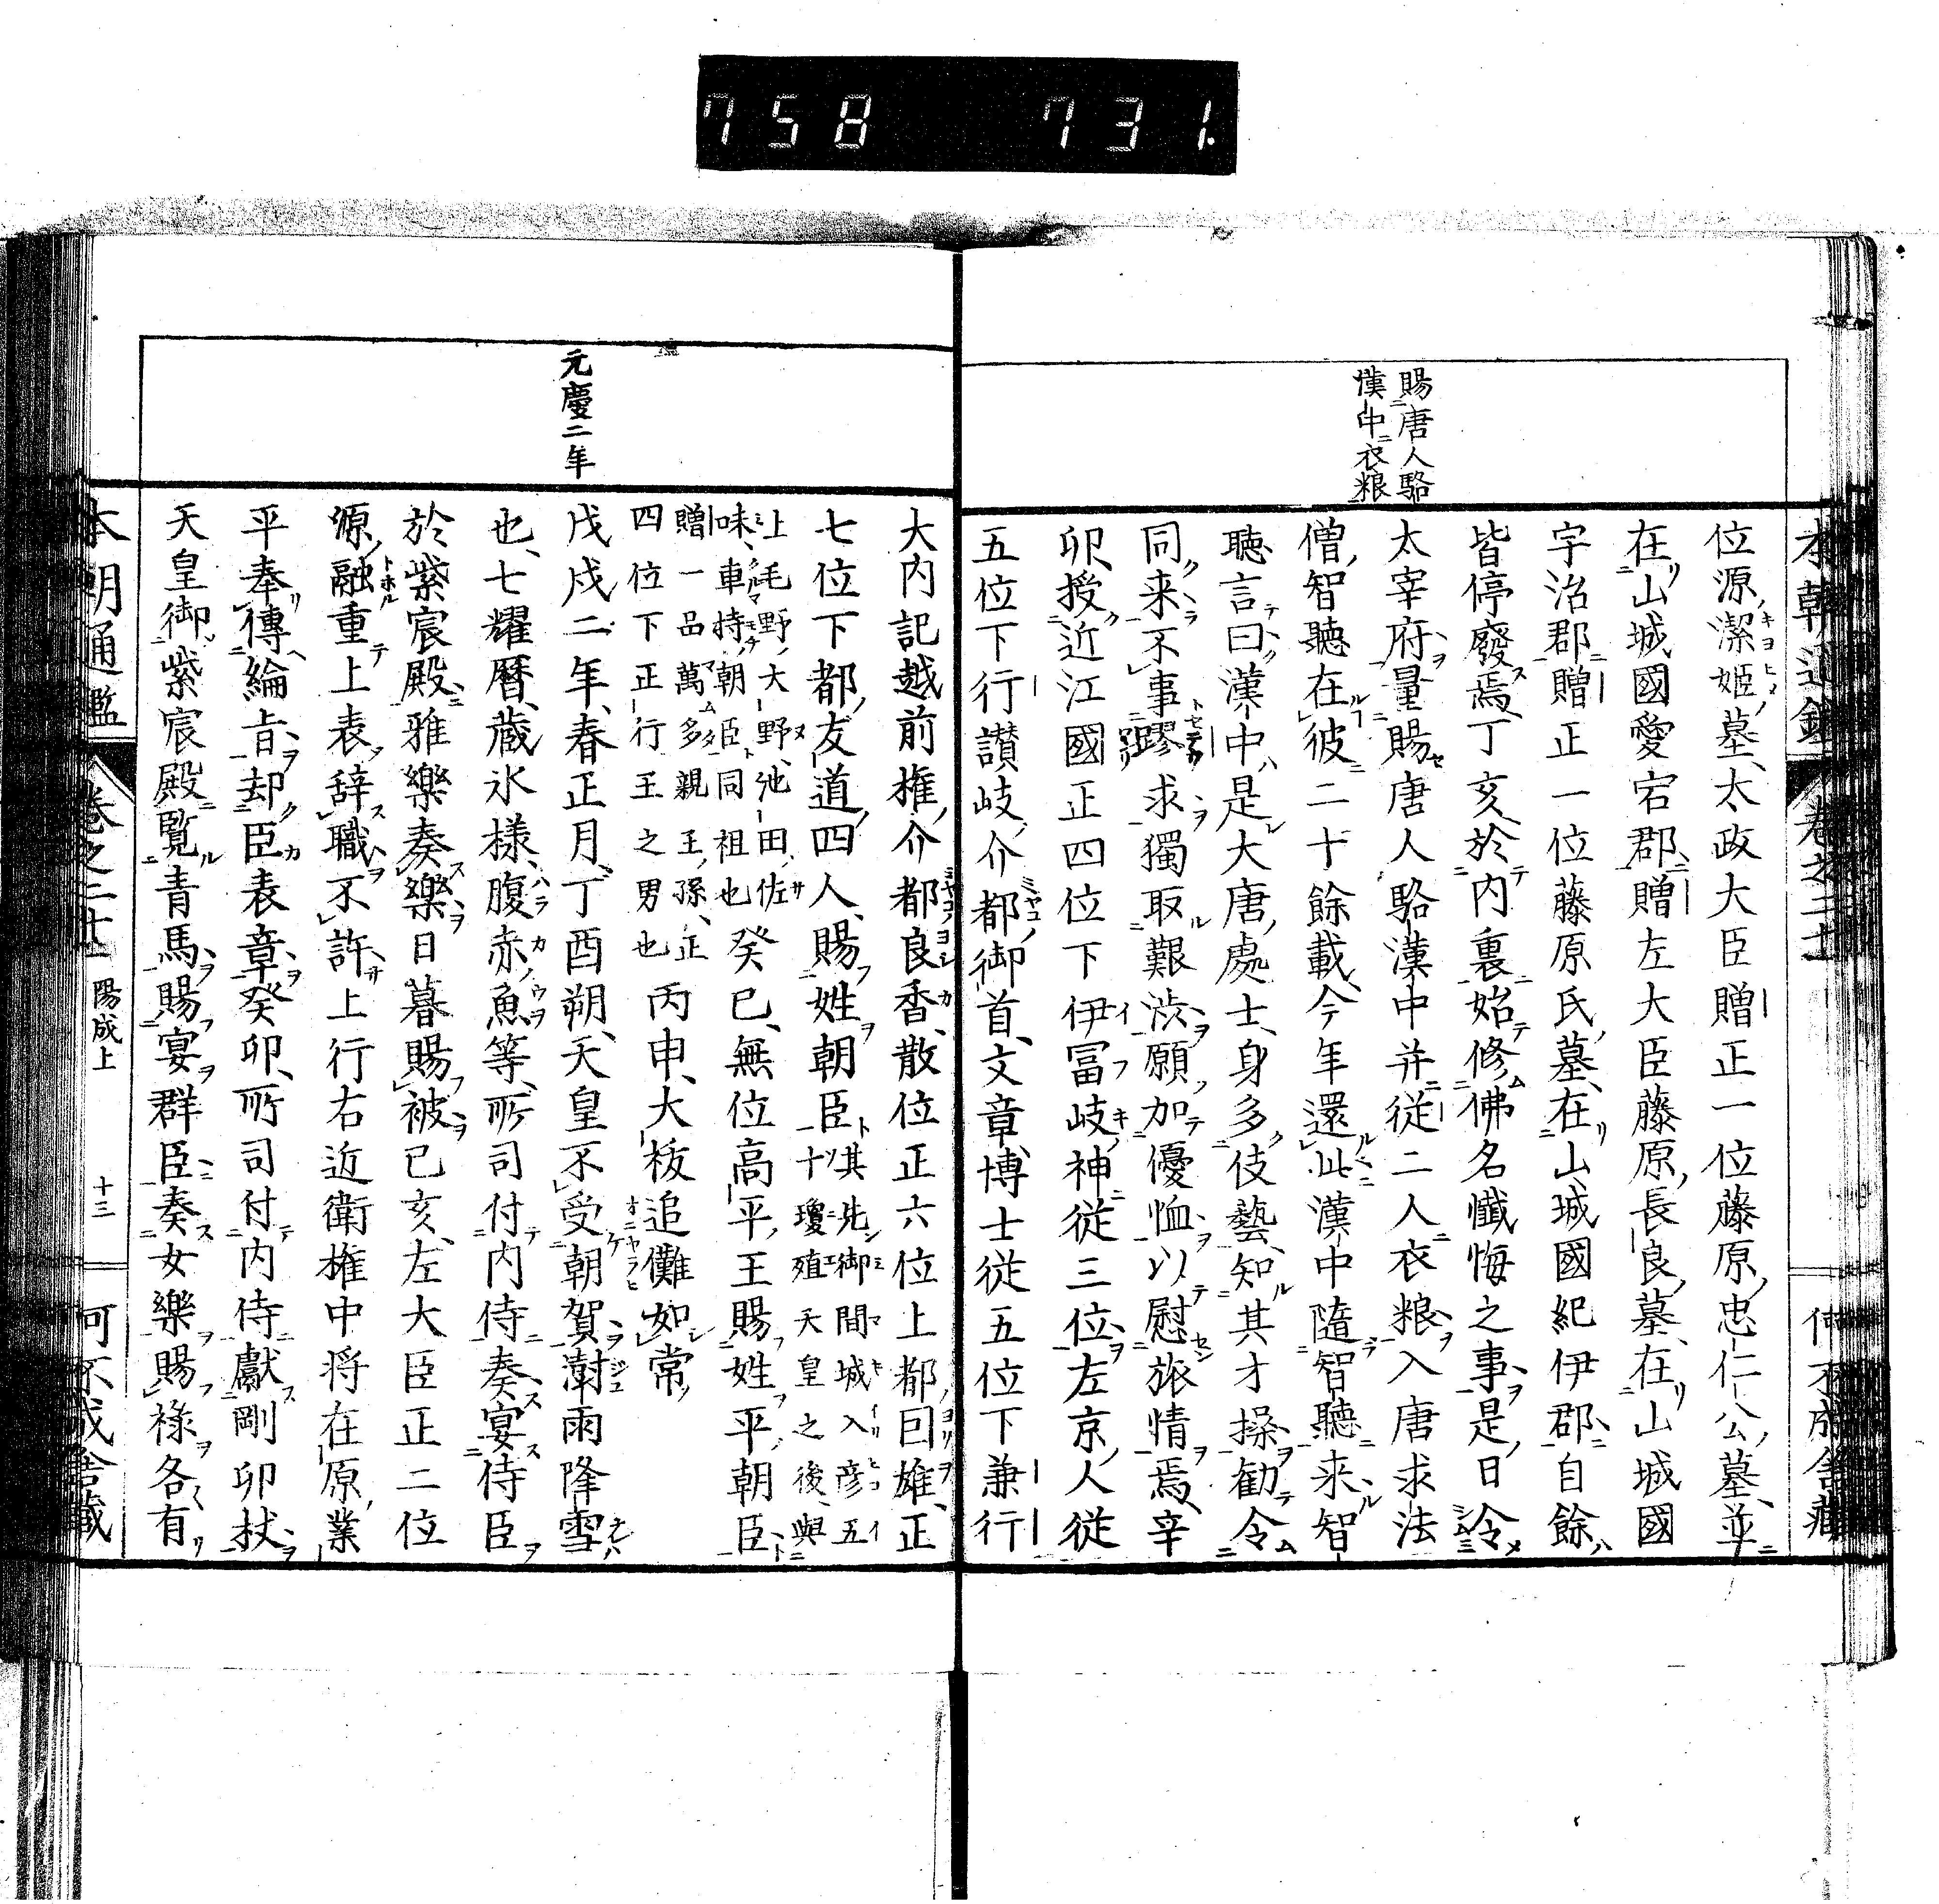 758 731.
賜唐人駱
漢中衣粮
位源潔姫墓太政大臣贈正一位藤原忠仁公墓並
在山城國愛宕郡贈左大臣藤原長良墓在山城國
宇治郡贈正一位藤原氏墓在山城國紀伊郡自餘
皆停廢焉丁亥於内裏始修佛名懺悔之事是日令
太宰府量賜唐人駱漢中并従二人衣粮入唐求法
僧智聽在彼二十餘載今年還此漢中隨智聽来智
聽言曰漢中是大唐處士身多伎藝知其才操勸令
同来不事蹘求獨取艱渋願加優恤以慰旅情焉辛
卯授近江國正四位下伊冨岐神従三位左京人従
五位下行讃岐介都御首文章博士従五位下兼行
大内記越前權介都良香散位正六位上都囙雄正
七位下都友道四人賜姓朝臣其先御間城入彦五
十瓊殖天皇之後與
上毛野大野池田佐
味車持朝臣同祖也癸巳無位高平王賜姓平朝臣
贈一品萬多親王孫正
四位下正行王之男也丙申大祓追儺如常
元慶二年
戊戌二年春正月丁酉朔天皇不受朝賀澍雨降雪
也七耀暦蔵氷様腹赤魚等所司付内侍奏宴侍臣
於紫宸殿雅樂奏樂日暮賜被己亥左大臣正二位
源融重上表辞職不許上行右近衛權中将在原業
平奉傳綸旨却臣表章癸卯所司付内侍獻剛卯杖
天皇御紫宸殿覧青馬賜宴群臣奏女樂賜祿各有
本朝通鑑 卷之二十 陽成上 十三 何不成舎藏